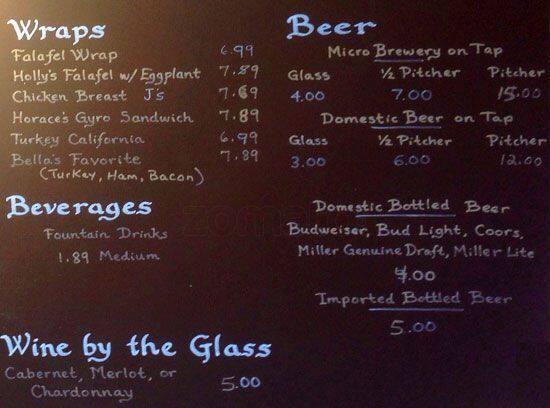 Wraps
Falafel Wrap 6.99
Holly's Falafel w/ Eggplant 7.89
Chicken Breast J's 7.69
Horace's Gyro Sandwich 7.89
Turkey California 6.99
Bella's Favorite 7.89
(Turkey, Ham, Bacon)
Beverages
Fountain Drinks
1.89 Medium
Wine by the Glass
Cabernet, Merlot, or
Chardonnay 5.00
Beer
Micro Brewery on Tap
Glass ½ Pitcher Pitcher
4.00 7.00 15.00
Domestic Beer on Tap
Glass ½ Pitcher Pitcher
3.00 6.00 12.00
Domestic Bottled Beer
Budweiser, Bud Light, Coors,
Miller Genuine Draft, Miller Lite
4.00
Imported Bottled Beer
5.00